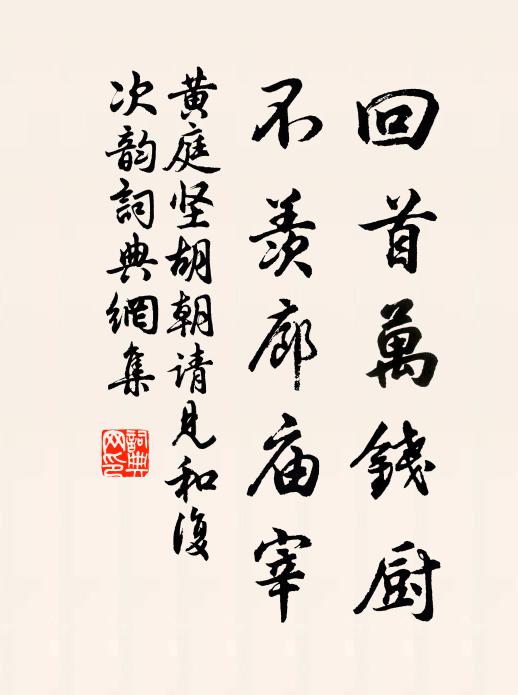 回首萬錢厨
不羨廊庙宰
黄庭坚胡朝请见和復
次韵詞典網集
詞典
网印